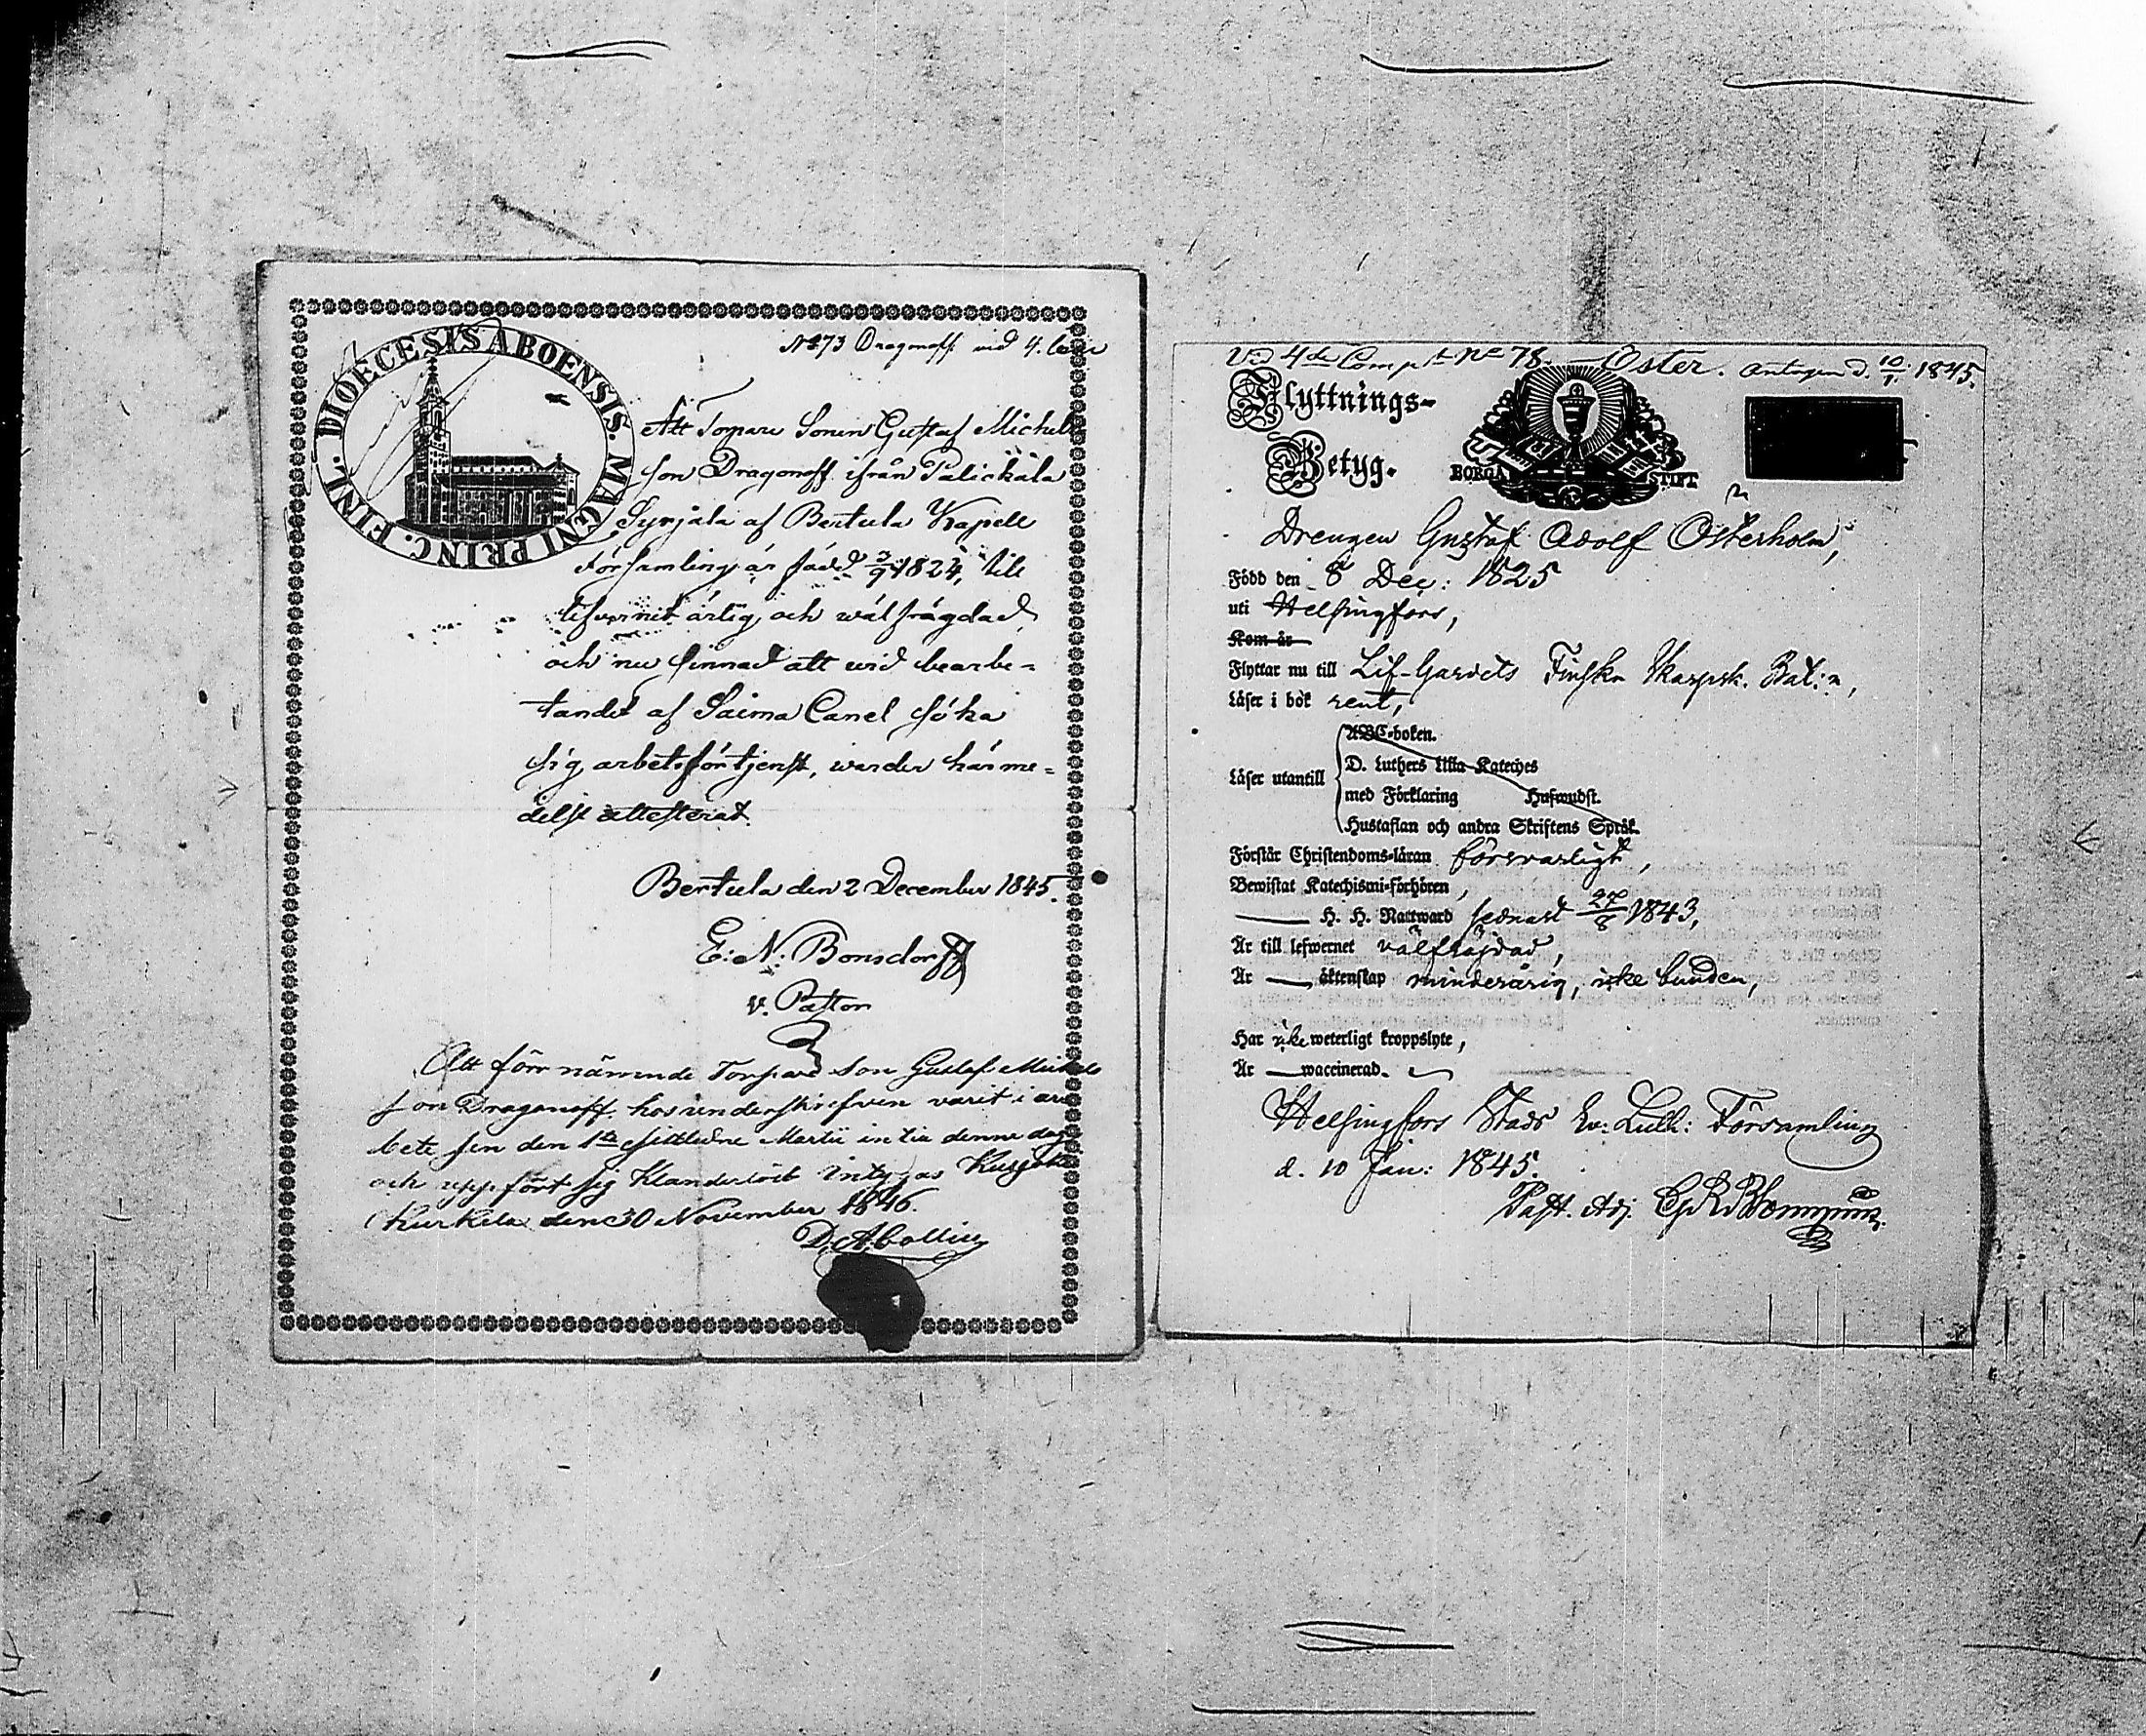 DIOECESIS ABOENSIS. MAGNI PRINC. FINL.
No 73 Dragonoff vid 4. Com
Att Torpare Sonen Gustaf Michels
son Dragonoff ifrån Palickala
Syrjälä af Bertula Kapell
Församling är född 3/9 1824, till
lefvernet ärlig och wälfrägdad,
och nu sinnad att wid bearbe=
tandet af Saima Canel söka
sig arbetsförtjenst, warder härme=
delst attesterad.
Bertula den 2 December 1845.
E. N. Bonsdorff
v. Pastor
Att förr nämnde Torpare Son Gustaf Michels
son Dragonoff hos underskrifven varit i ar
bete sen den 1sta sistledne Martii intill denne dag
och uppfört sig Klanderlöst intygas
Kurkela den 30 November 1846.
D. A. Collin
Vid 4de Comp:t No 78. Öster. Antagen d. 10/1. 1845.
Flyttnings-
Betyg.
BORGÅ STIFT
Drengen Gustaf Adolf Österholm,
Född den 8 Dec: 1825
uti Helsingfors,
Kom år
Flyttar nu till Lif-Gardets Finska Skarpsk. Bat:n,
Läser i bok rent,
ABC-boken.
D. Luthers lilla Kateches
Läser utantill
med Förklaring Hufwudst.
Hustaflan och andra Skriftens Språk.
Förstår Christendoms-läran försvarligt,
Bewistat Katechismi-förhören,
H. H. Nattward sednast 27/8 1843,
Är till lefwernet välfräjdad,
Är äktenskap minderårig, icke bunden,
Har icke weterligt kroppslyte,
Är waccinerad.
Helsingfors Stads Ev: Luth: Församling
d. 10 Jan: 1845.
Past. Adj.